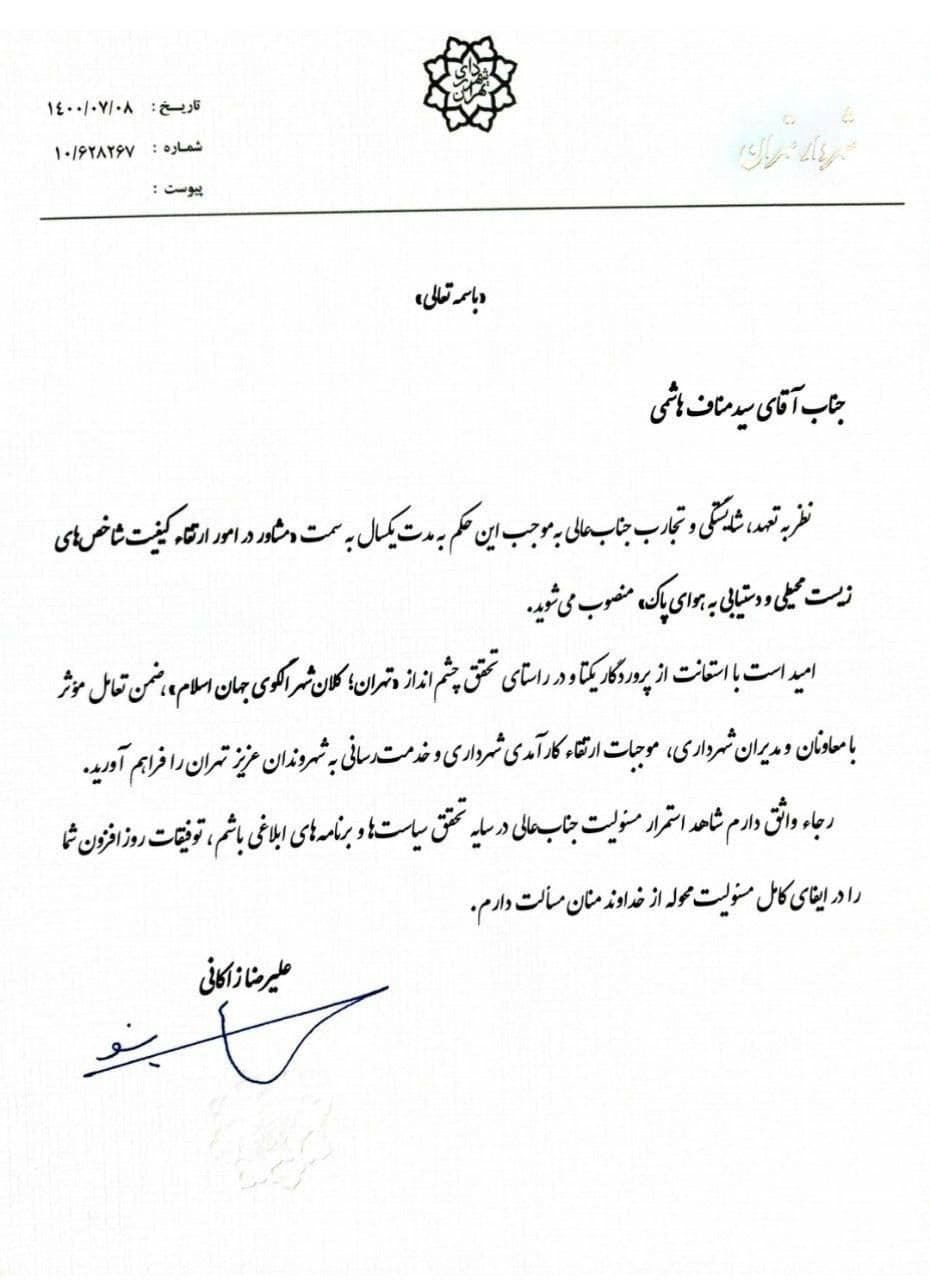 شهرداری تهران
شهردار تهران
تاریخ : ۱۴۰۰/۰۷/۰۸
شماره : ۱۰/۶۲۸۲۶۷
پیوست :
«باسمه تعالی»
جناب آقای سید مناف هاشمی
نظر به تعهد، شایستگی و تجارب جناب‌عالی به موجب این حکم به مدت یکسال به سمت «مشاور در امور ارتقاء کیفیت شاخص‌های
زیست محیطی و دستیابی به هوای پاک» منصوب می‌شوید.
امید است با استعانت از پروردگار یکتا و در راستای تحقق چشم انداز «تهران؛ کلان‌شهر الگوی جهان اسلام»، ضمن تعامل مؤثر
با معاونان و مدیران شهرداری، موجبات ارتقاء کارآمدی شهرداری و خدمت رسانی به شهروندان عزیز تهران را فراهم آورید.
رجاء واثق دارم شاهد استمرار مسئولیت جناب‌عالی در سایه تحقق سیاست‌ها و برنامه‌های ابلاغی باشم، توفیقات روزافزون شما
را در ایفای کامل مسئولیت محوله از خداوند منان مسألت دارم.
علیرضا زاکانی